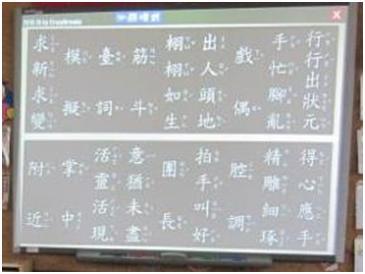 行行出狀元
手忙腳亂
戲偶
出人頭地
栩栩如生
筋斗
臺詞
模擬
求新求變
得心應手
精雕細琢
腔調
拍手叫好
團長
意猶未盡
活靈活現
掌中
附近